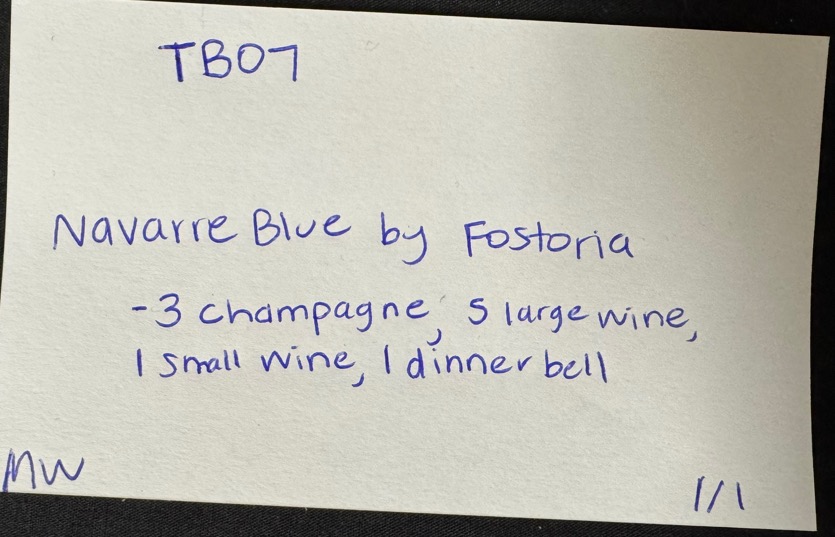 TB07
Navarre Blue by Fostoria
-3 champagne, 5 large wine,
1 small wine, 1 dinner bell
MW
1/1